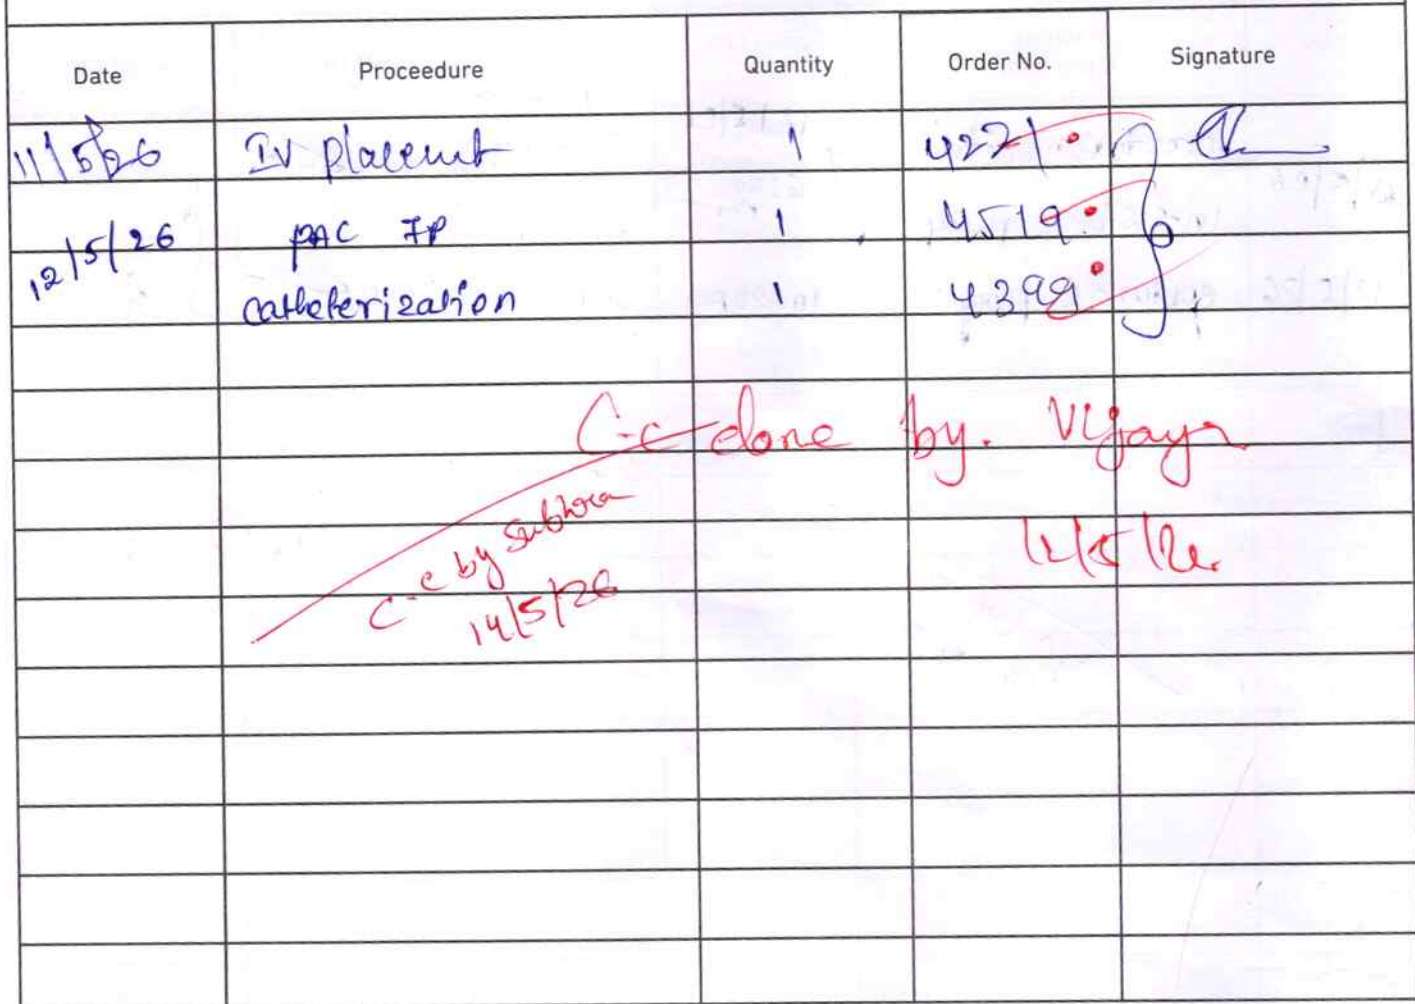 Date Proceedure Quantity Order No. Signature
11/5/26 IV placemnt 1 4271
12/5/26 PAC IP 1 4519
catheterization 1 4399
C-c done by. Vijaya
C-c by Subhra
14/5/26